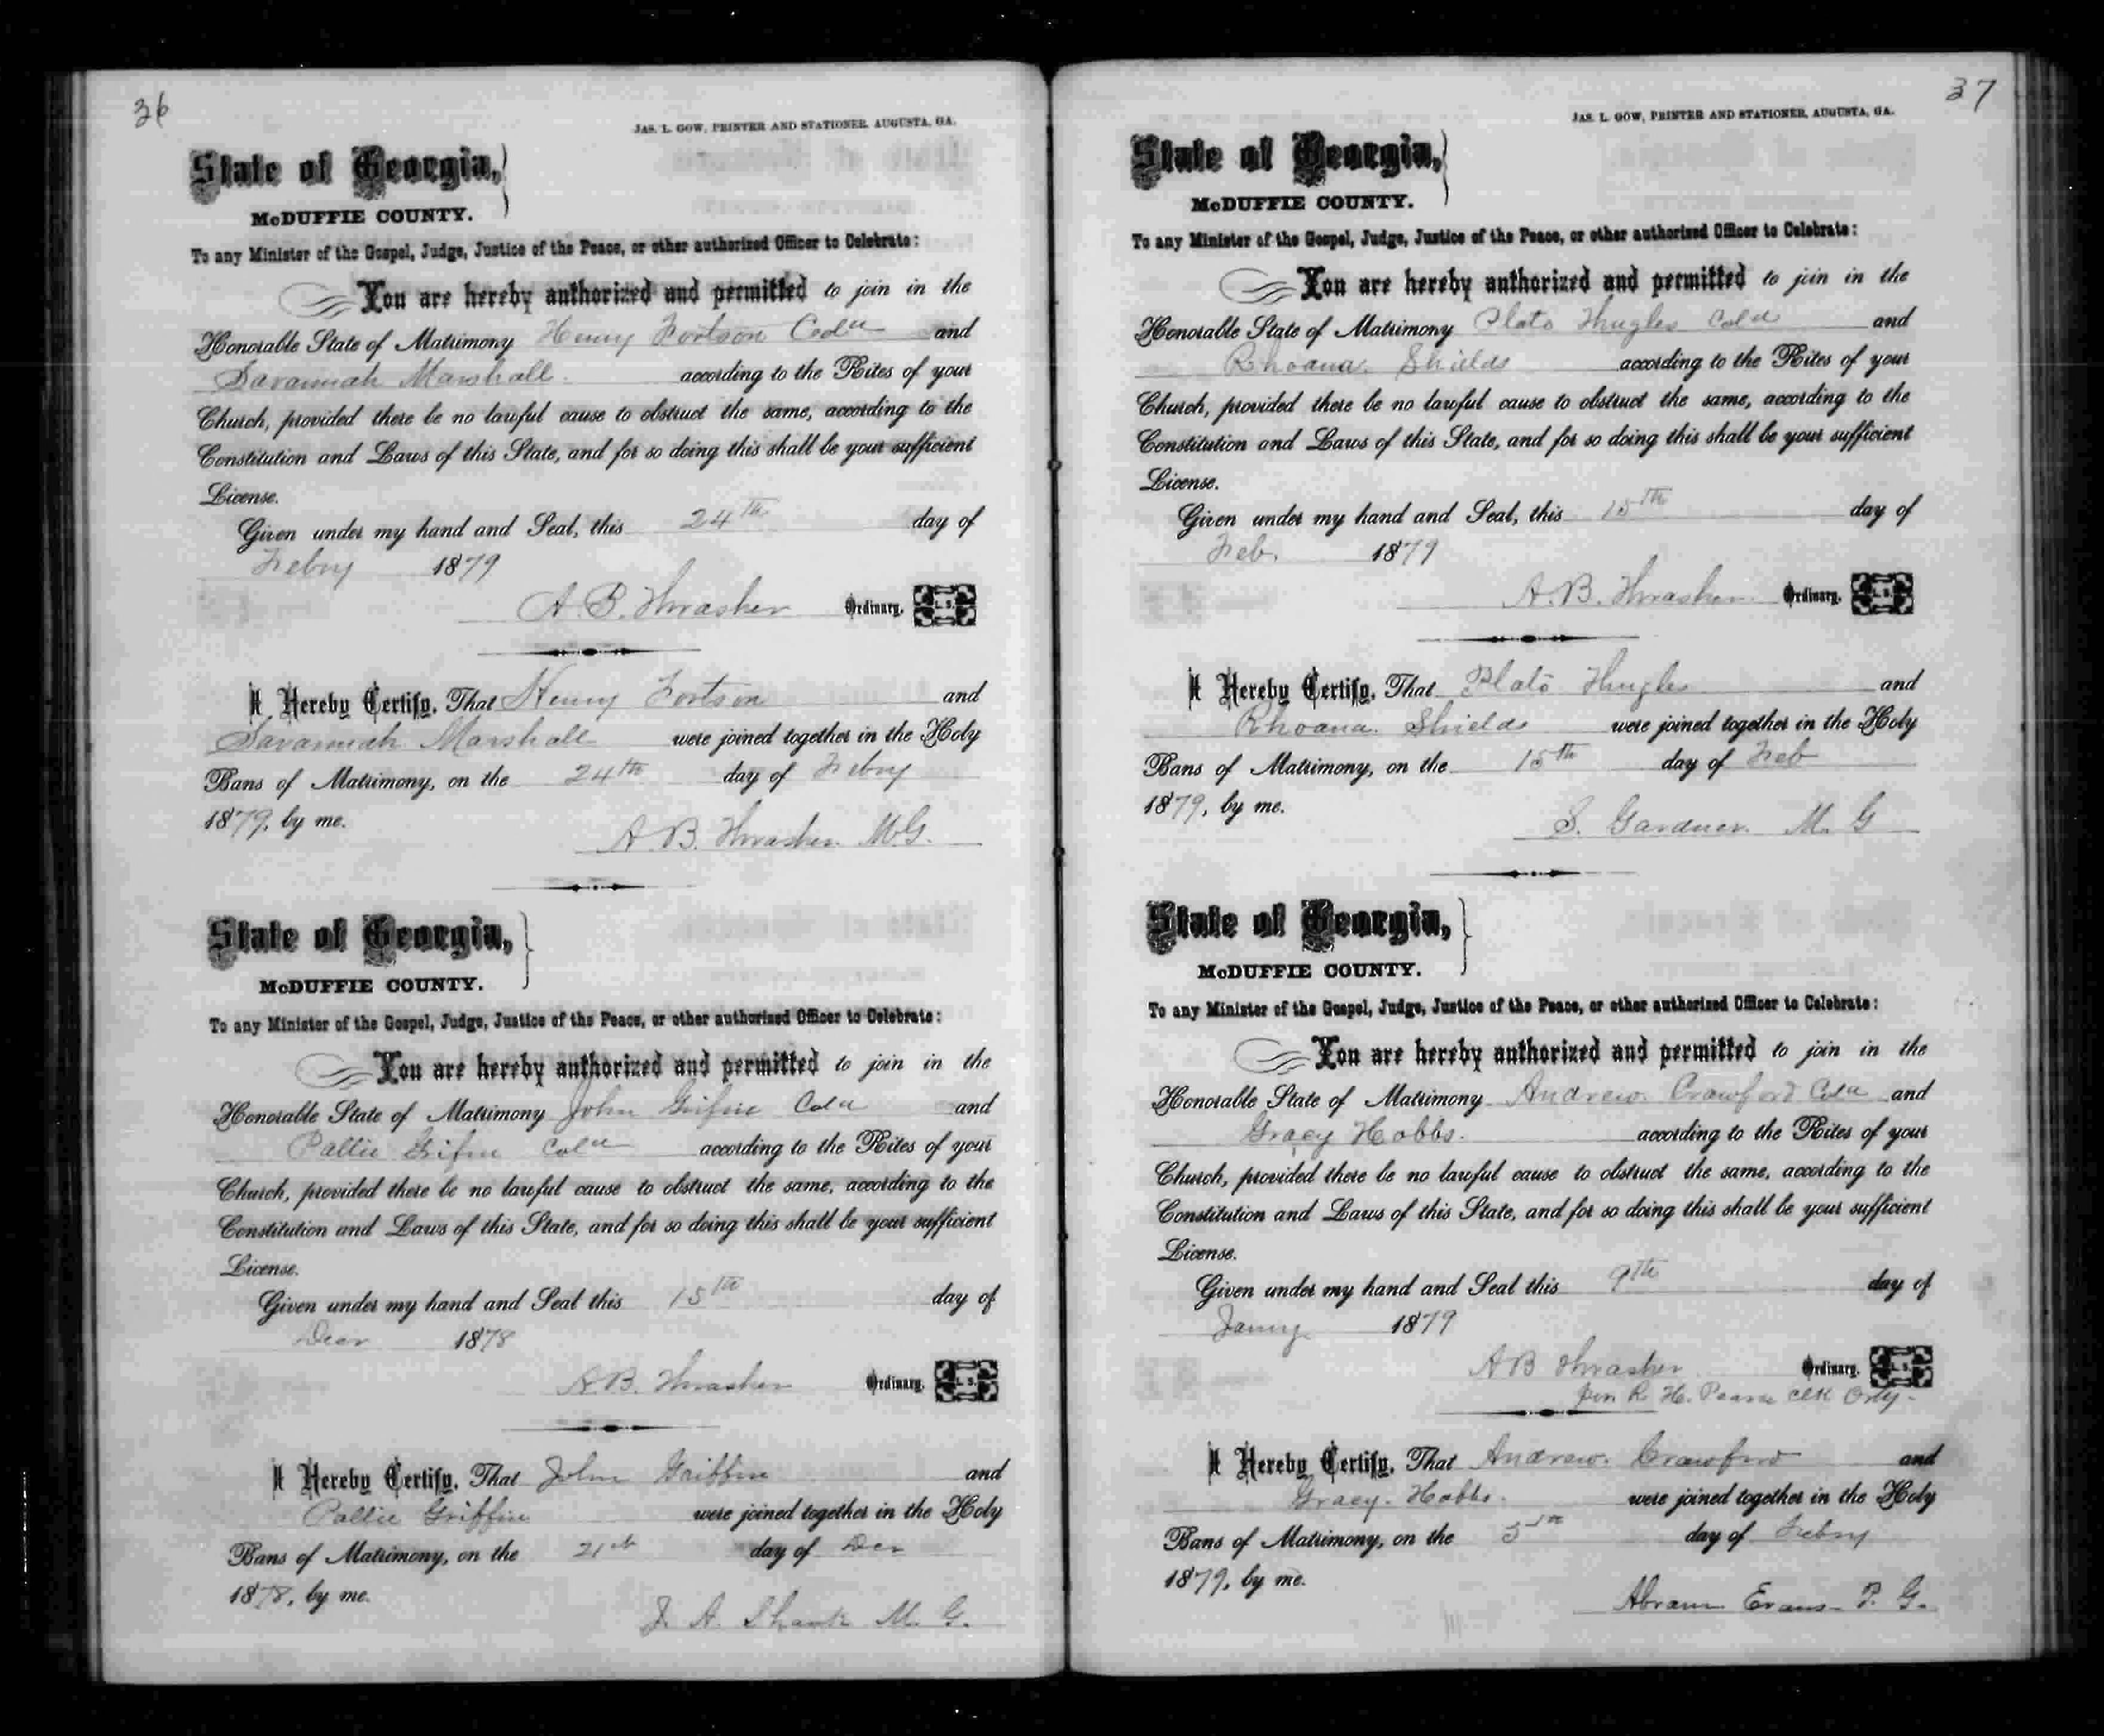 36
JAS. L. GOW, PRINTER AND STATIONER, AUGUSTA, GA.
State of Georgia,
McDUFFIE COUNTY.
To any Minister of the Gospel, Judge, Justice of the Peace, or other authorized Officer to Celebrate:
You are hereby authorized and permitted to join in the
Honorable State of Matrimony Henry Fortson Cold and
Savannah Marshall. according to the Rites of your
Church, provided there be no lawful cause to obstruct the same, according to the
Constitution and Laws of this State, and for so doing this shall be your sufficient
License.
Given under my hand and Seal, this 24th day of
Febry 1879
A. B. Thrasher Ordinary. L. S.
I Hereby Certify, That Henry Fortson and
Savannah Marshall were joined together in the Holy
Bans of Matrimony, on the 24th day of Febry
1879, by me.
A. B. Thrasher M.G.
State of Georgia,
McDUFFIE COUNTY.
To any Minister of the Gospel, Judge, Justice of the Peace, or other authorized Officer to Celebrate:
You are hereby authorized and permitted to join in the
Honorable State of Matrimony John Grifin Cold and
Pallie Grifin Cold according to the Rites of your
Church, provided there be no lawful cause to obstruct the same, according to the
Constitution and Laws of this State, and for so doing this shall be your sufficient
License.
Given under my hand and Seal this 15th day of
Decr 1878
A.B. Thrasher Ordinary. L. S.
I Hereby Certify, That John Griffin and
Pallie Griffin were joined together in the Holy
Bans of Matrimony, on the 21st day of Dec
1878, by me.
J. A. Shank M. G.
37
JAS. L. GOW, PRINTER AND STATIONER, AUGUSTA, GA.
State of Georgia,
McDUFFIE COUNTY.
To any Minister of the Gospel, Judge, Justice of the Peace, or other authorized Officer to Celebrate:
You are hereby authorized and permitted to join in the
Honorable State of Matrimony Plato Hugles Cold and
Rhoana Shields according to the Rites of your
Church, provided there be no lawful cause to obstruct the same, according to the
Constitution and Laws of this State, and for so doing this shall be your sufficient
License.
Given under my hand and Seal, this 15th day of
Feb. 1879
A. B. Thrasher Ordinary. L. S.
I Hereby Certify, That Plato Hugles and
Rhoana Shields were joined together in the Holy
Bans of Matrimony, on the 15th day of Feb
1879, by me.
S. Gardner. M. G
State of Georgia,
McDUFFIE COUNTY.
To any Minister of the Gospel, Judge, Justice of the Peace, or other authorized Officer to Celebrate:
You are hereby authorized and permitted to join in the
Honorable State of Matrimony Andrew Crawford Cold and
Gracy Hobbs. according to the Rites of your
Church, provided there be no lawful cause to obstruct the same, according to the
Constitution and Laws of this State, and for so doing this shall be your sufficient
License.
Given under my hand and Seal this 9th day of
Janry 1879
A B Thrasher Ordinary. L. S.
per R. H. Pearce clk Ordy.
I Hereby Certify, That Andrew Crawford and
Gracy Hobbs. were joined together in the Holy
Bans of Matrimony, on the 5th day of Febry
1879, by me.
Abram Evans P. G.